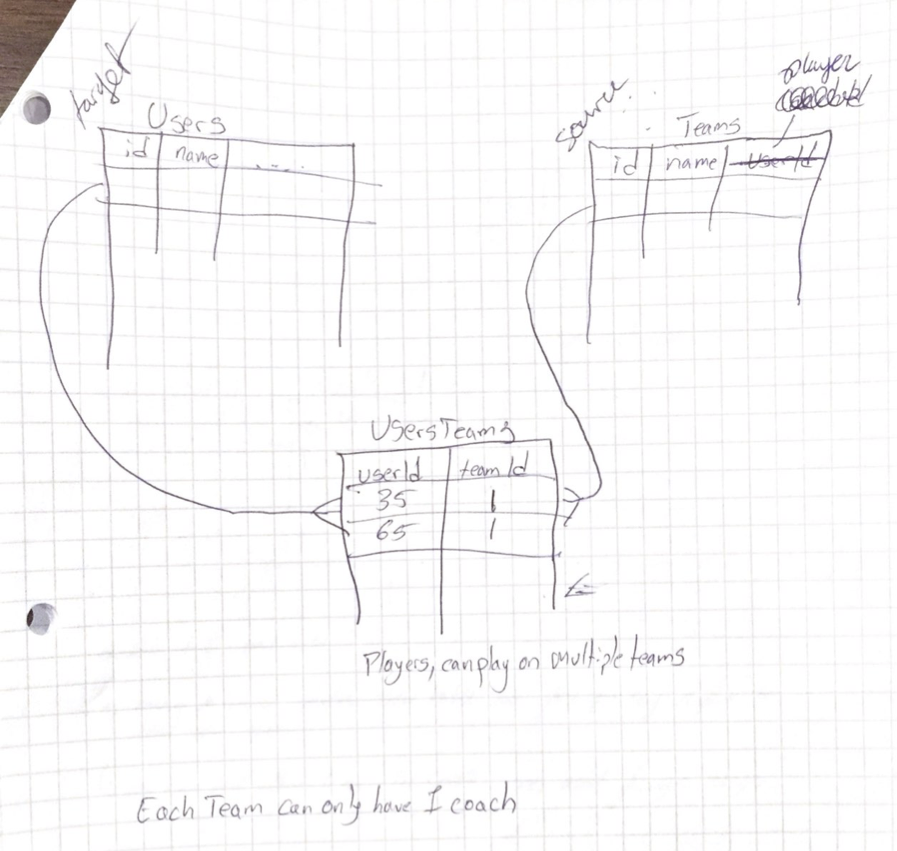 target
Users
id name ....
source
Teams
player
id name userId
UsersTeams
userId teamId
35 1
65 1
Players, can play on multiple teams
Each Team can only have 1 coach